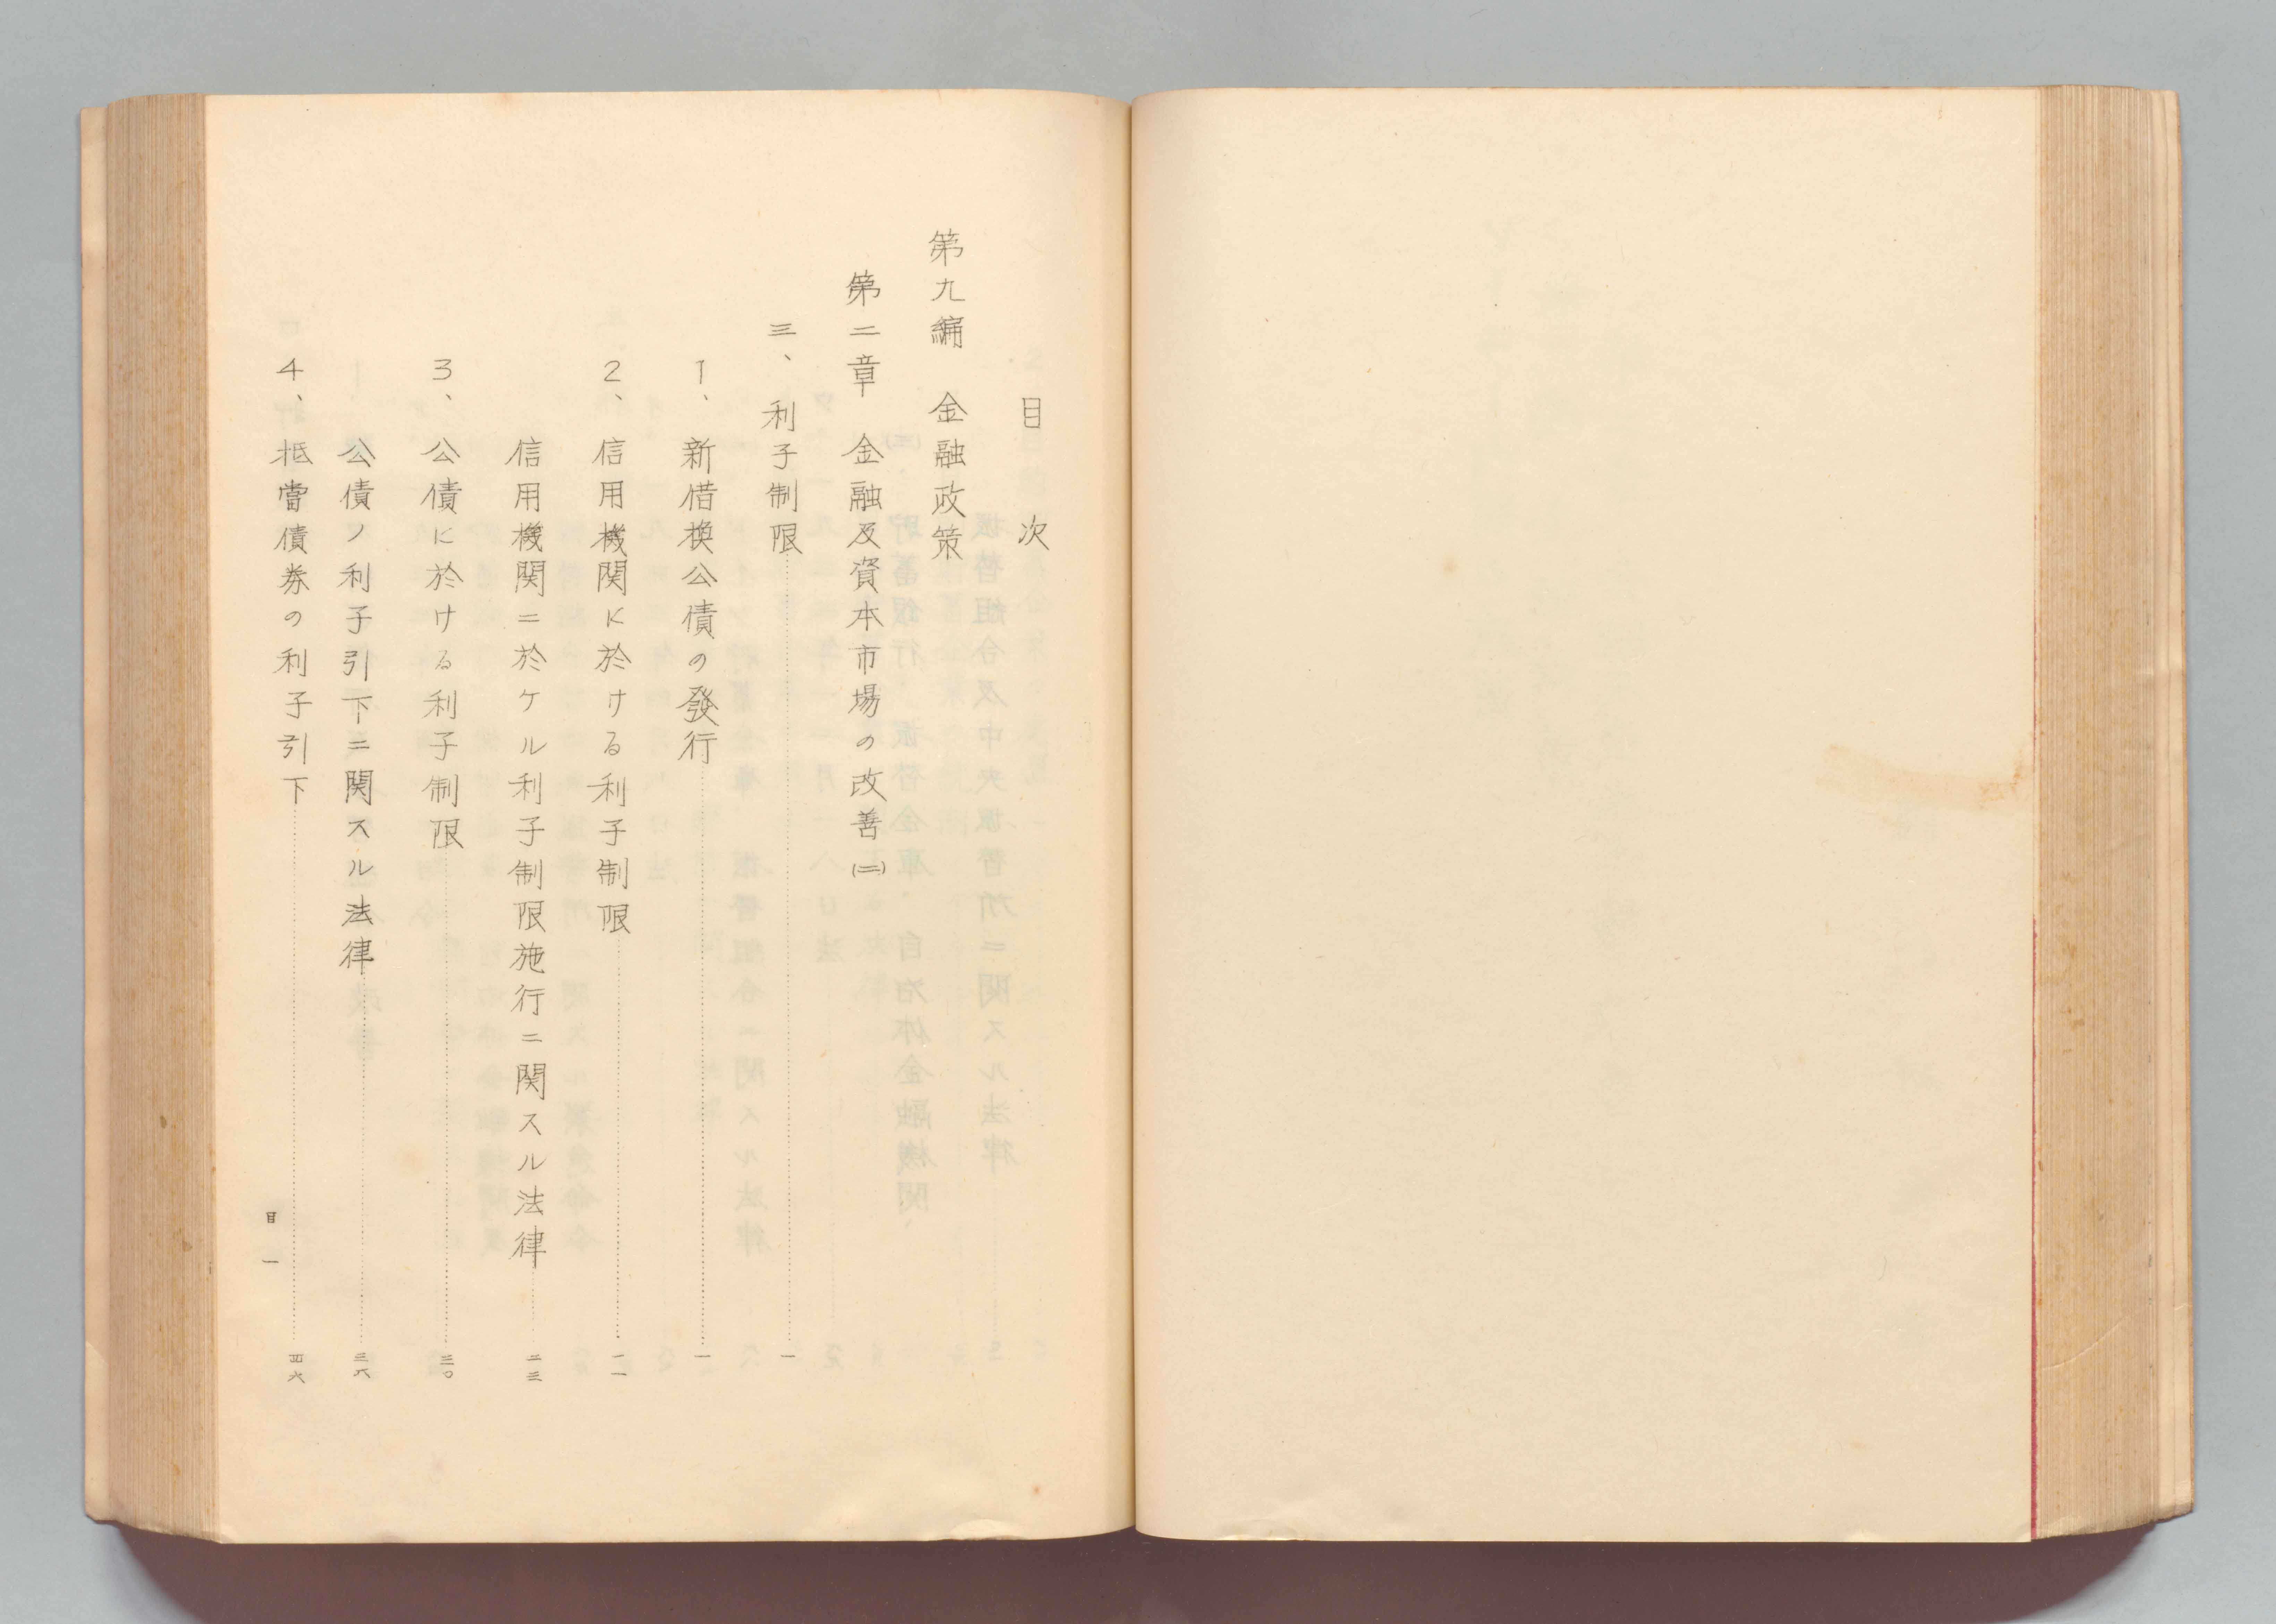 目次
第九編 金融政策
第二章 金融及資本市場の改善(二)
三、利子制限……一
1、新借換公債の發行……一
2、信用機関に於ける利子制限……二一
信用機関ニ於ケル利子制限施行ニ関スル法律……二三
3、公債に於ける利子制限……三〇
公債ノ利子引下ニ関スル法律……三六
4、抵當債券の利子引下……四六
目一